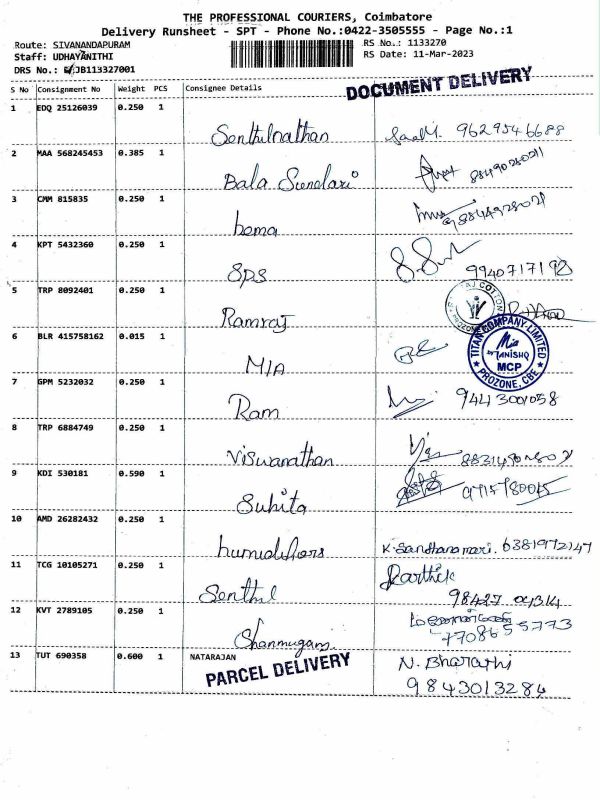 THE PROFESSIONAL COURIERS, Coimbatore
Delivery Runsheet - SPT - Phone No.:0422-3505555 - Page No.:1
Route: SIVANANDAPURAM
RS No.: 1133270
Staff: UDHAYANITHI
RS Date: 11-Mar-2023
DRS No.: JB113327001
S No Consignment No Weight PCS Consignee Details
DOCUMENT DELIVERY
1 EDQ 25126039 0.250 1
Senthilnathan 9629546688
2 MAA 568245453 0.385 1
Bala
3 CMM 815835 0.250 1
hema
4 KPT 5432360 0.250 1
SPS 9940717192
5 TRP 8092401 0.250 1
COTTON
Ramraj
6 BLR 415758162 0.015 1
TITAN COMPANY LIMITED
Mia
BY TANISHQ
MCP
PROZONE, CBE
MIA
7 GPM 5232032 0.250 1
Ram 9443001058
8 TRP 6884749 0.250 1
Viswanathan
9 KDI 530181 0.590 1
Suhita
10 AMD 26282432 0.250 1
K. Sandhanamari. 6381972147
11 TCG 10105271 0.250 1
Karthik
Senthil 98427
12 KVT 2789105 0.250 1
Shanmugam 7708655773
13 TUT 690358 0.600 1 NATARAJAN N. Bharathi
PARCEL DELIVERY 9843013284